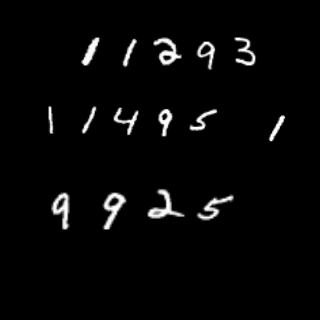 1 1 2 9 3
1 1 4 9 5 1
9 9 2 5